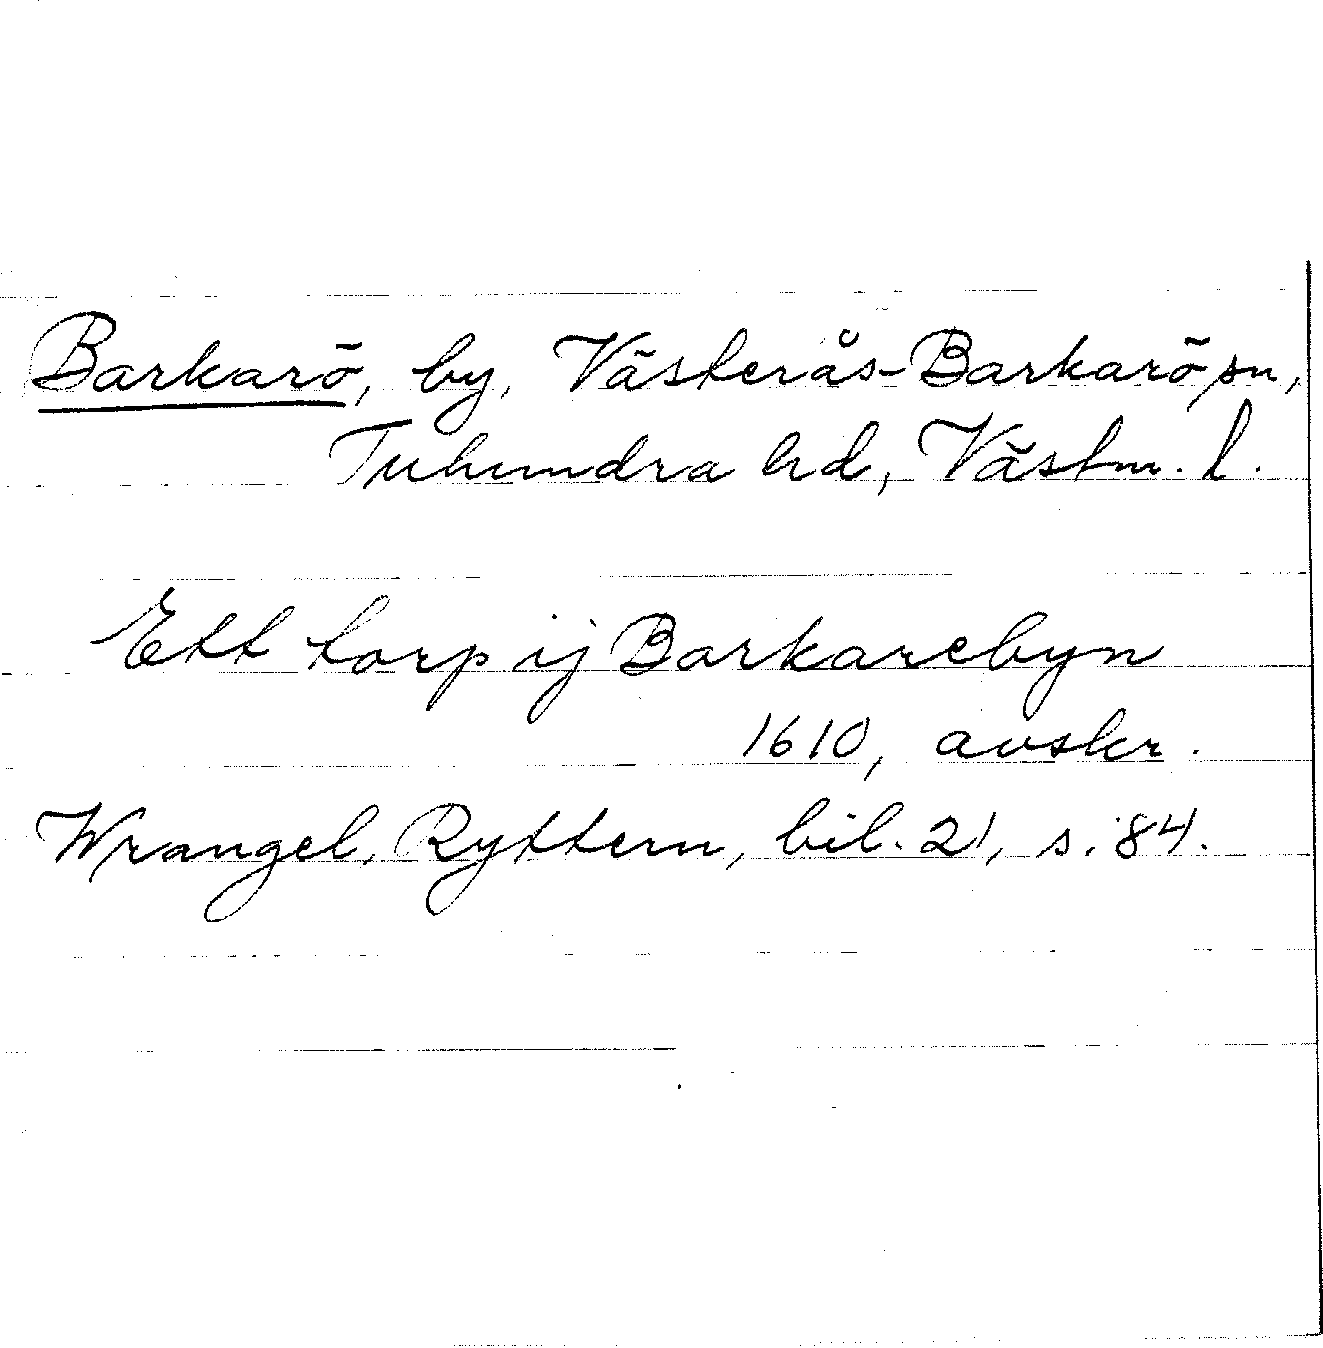 Barkarö, by, Västerås-Barkarö sn,
Tuhundra hd, Västm. l.
Ett torp ij Barkarebyn
1610, avskr.
Wrangel, Ryttern, bil. 21, s. 84.